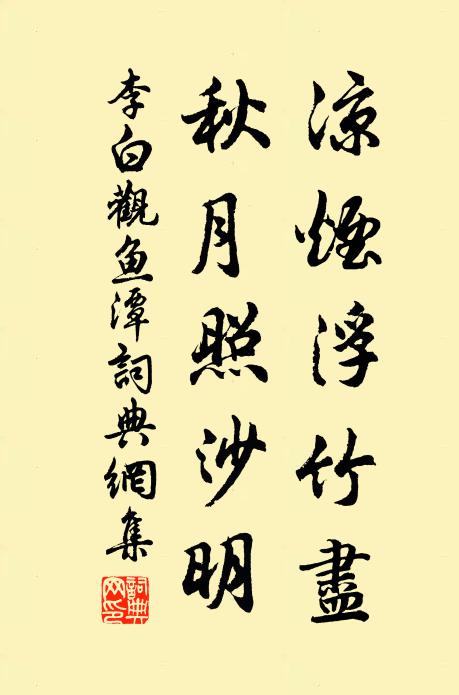 涼煙浮竹盡
秋月照沙明
李白觀魚潭詞典網集
詞典網印